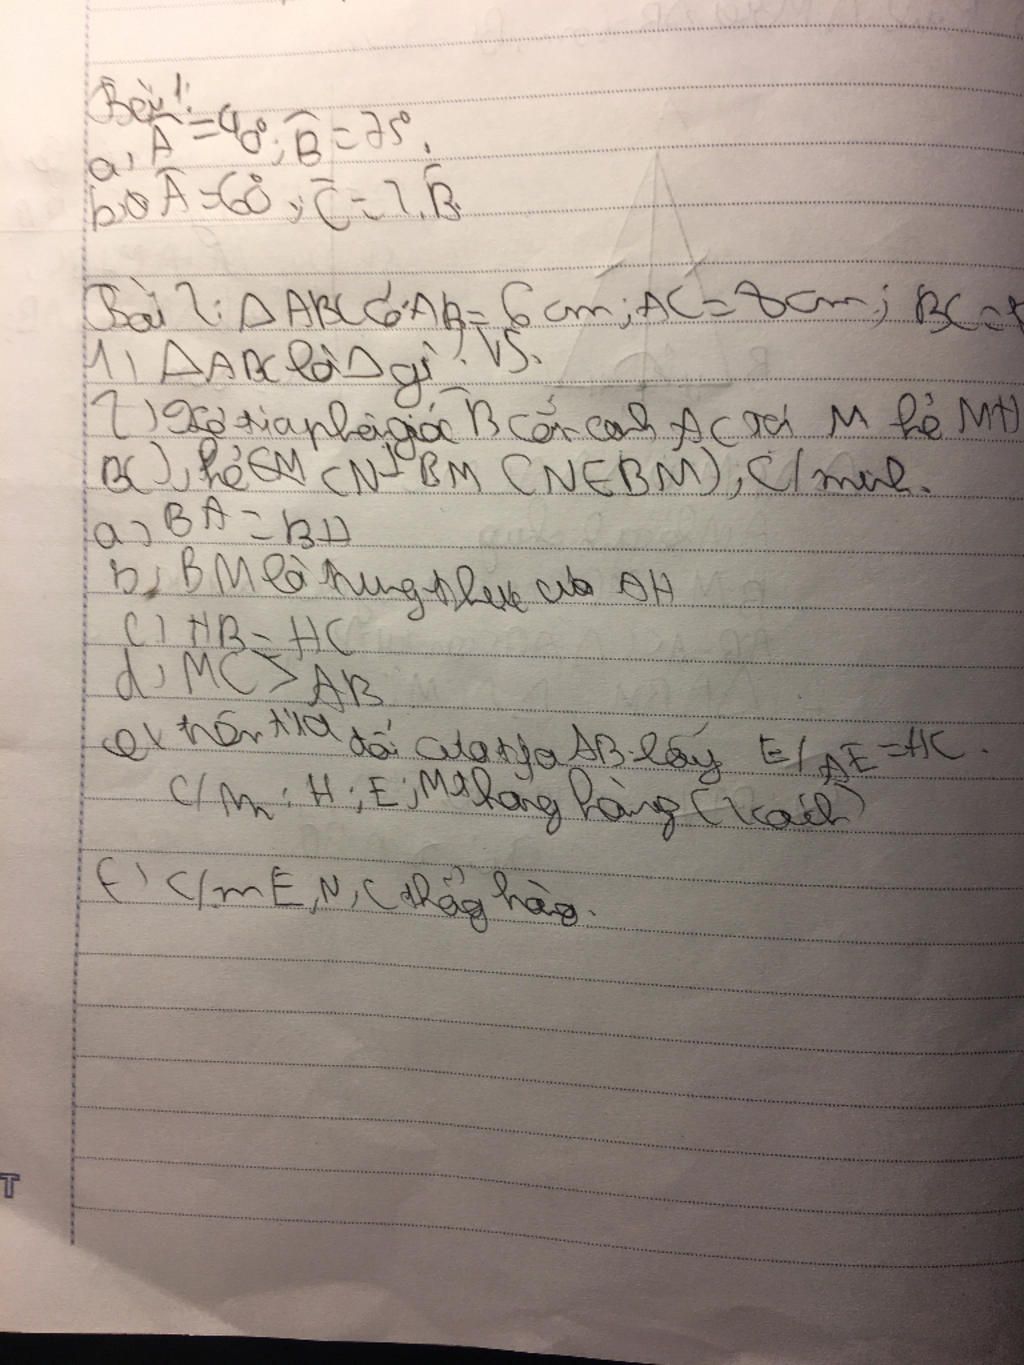 Bài 1:
a, Â = 40°; B̂ = 75°.
b, Â = 60°, Ĉ = 2.B̂.
Bài 2: Δ ABC có: AB = 6 cm; AC = 8 cm; BC =
1, Δ ABC là Δ gì? VS.
2) tia phân giác B̂ cắt cạnh AC tại M kẻ MH
BC), kẻ CN ⊥ BM (N∈BM), C/minh.
a, BA = BH
b, BM là trung trực của AH
c) HB = HC
d, MC > AB
e, trên tia đối của tia AB lấy E/ AE = HC.
C/m: H; E; M thẳng hàng (2 cách)
f) C/m E, N, C thẳng hàng.
T